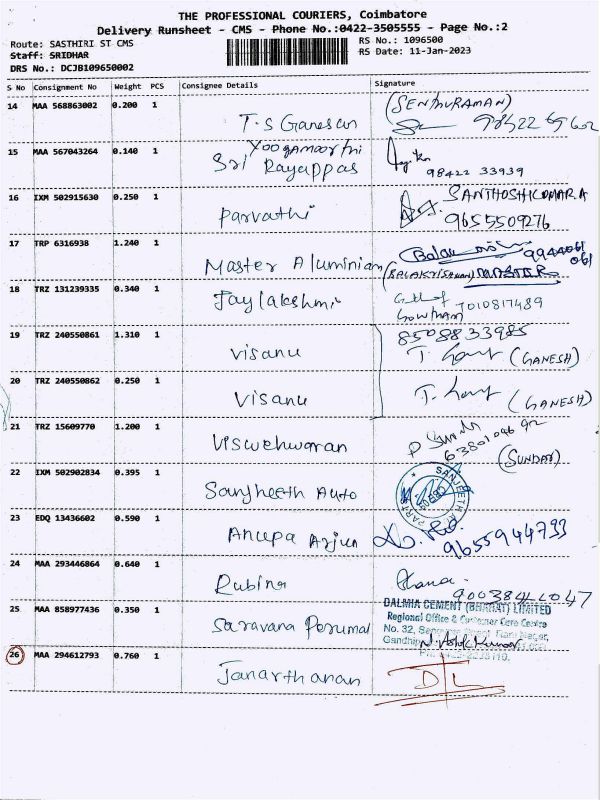 THE PROFESSIONAL COURIERS, Coimbatore
Delivery Runsheet - CMS - Phone No.:0422-3505555 - Page No.:2
Route: SASTHIRI ST CMS
RS No.: 1096500
Staff: SRIDHAR
RS Date: 11-Jan-2023
DRS No.: DCJB109650002
S No Consignment No Weight PCS Consignee Details Signature
14 MAA 568863002 0.200 1 T.S Ganesan (SENTHURAMAN)
15 MAA 567043264 0.140 1 Sri Yoogamoorthi Rayappas
98422 33939
16 IXM 502915630 0.250 1 Parvathi SANTHOSHKUMARA
9655509276
17 TRP 6316938 1.240 1 Master Aluminian
9944061
061
(BALAKRISHNAN) MASTER
18 TRZ 131239335 0.340 1 Jaylakshmi
GOWTHAM 7010817489
19 TRZ 240550861 1.310 1 Visanu 8508833985
(GANESH)
20 TRZ 240550862 0.250 1 Visanu
(GANESH)
21 TRZ 15609770 1.200 1 Viswehwaran
(SUNDAR)
22 IXM 502902834 0.395 1 Sanjheeth Auto SANJEETH
23 EDQ 13436602 0.590 1 Anupa Arjun
9655944733
24 MAA 293446864 0.640 1 Rubina
25 MAA 858977436 0.350 1 Saravana Perumal
DALMIA CEMENT (BHARAT) LIMITED
Regional Office & Customer Care Centre
No. 32,
26 MAA 294612793 0.760 1 Janarthanan D/L